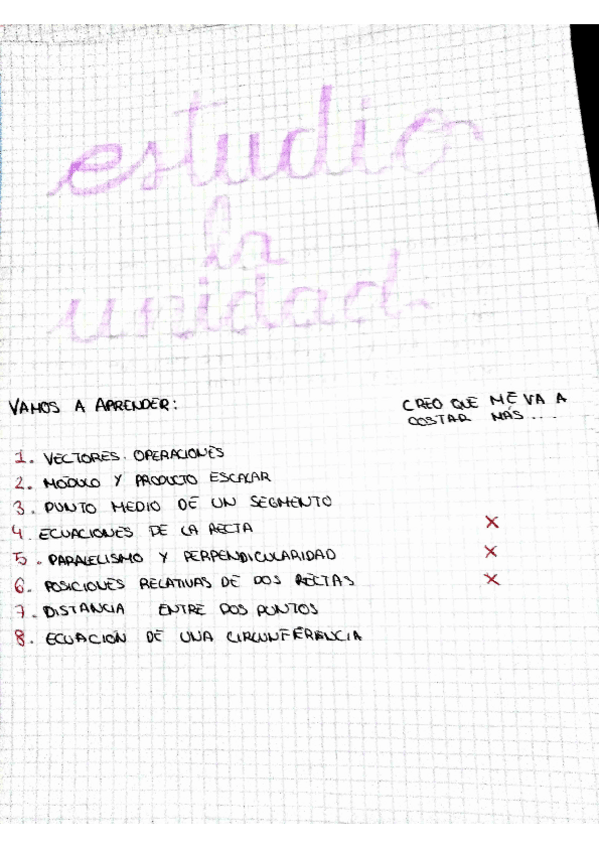 estudio
la
unidad
VAMOS A APRENDER:
CREO QUE ME VA A
COSTAR MÁS...
1. VECTORES. OPERACIONES
2. MÓDULO Y PRODUCTO ESCALAR
3. PUNTO MEDIO DE UN SEGMENTO
4. ECUACIONES DE LA RECTA X
5. PARALELISMO Y PERPENDICULARIDAD X
6. POSICIONES RELATIVAS DE DOS RECTAS X
7. DISTANCIA ENTRE DOS PUNTOS
8. ECUACIÓN DE UNA CIRCUNFERENCIA